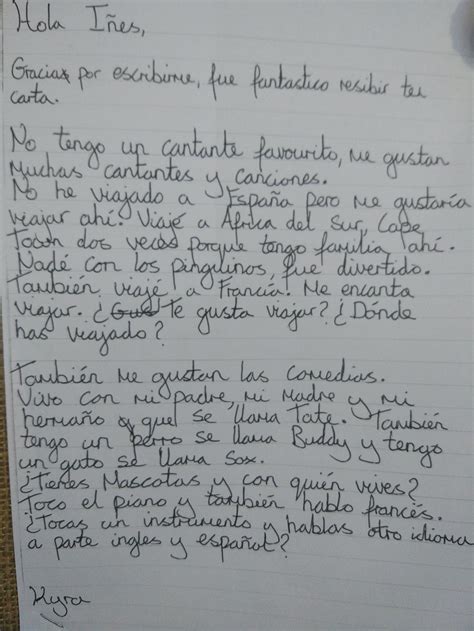 Hola Iñes,
Gracias por escribirme, fue fantastico resibir tu
carta.
No tengo un cantante favourito, me gustan
Muchas cantantes y canciones.
No he viajado a España pero me gustaría
viajar ahí. Viajé a Africa del Sur, Cape
Town dos veces porque tengo familia ahí.
Nadé con los pinguinos, fue divertido.
También viajé a Francia. Me encanta
viajar. ¿Que Te gusta viajar? ¿Dónde
has viajado?
También me gustan las comedias.
Vivo con mi padre, mi Madre y mi
hermaño y que se llama Tate. También
tengo un perro se llama Buddy y tengo
un gato se llama Sox.
¿Tienes Mascotas y con quién vives?
Toco el piano y también hablo francés.
¿Tocas un instrumento y hablas otro idioma
a parte ingles y español?
Kyra